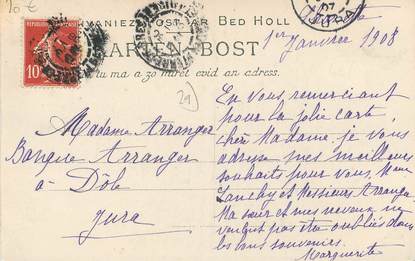 10 €
UNVANIEZ POST AR BED HOLL
KARTEN-BOST
tu ma a zo miret evid an adress.
REPUBLIQUE FRANÇAISE
10
POSTES
1er Janvier 1908
21
En vous remerciant
pour la jolie carte,
chère Madame, je vous
adresse mes meilleurs
souhaits pour vous, Mme
et Messieurs Arranger
Ma sœur et mes neveux ne
veulent pas être oubliés dans
les bons souvenirs.
Marguerite
Madame Arranger
Banque Arranger
à Dôle
Jura